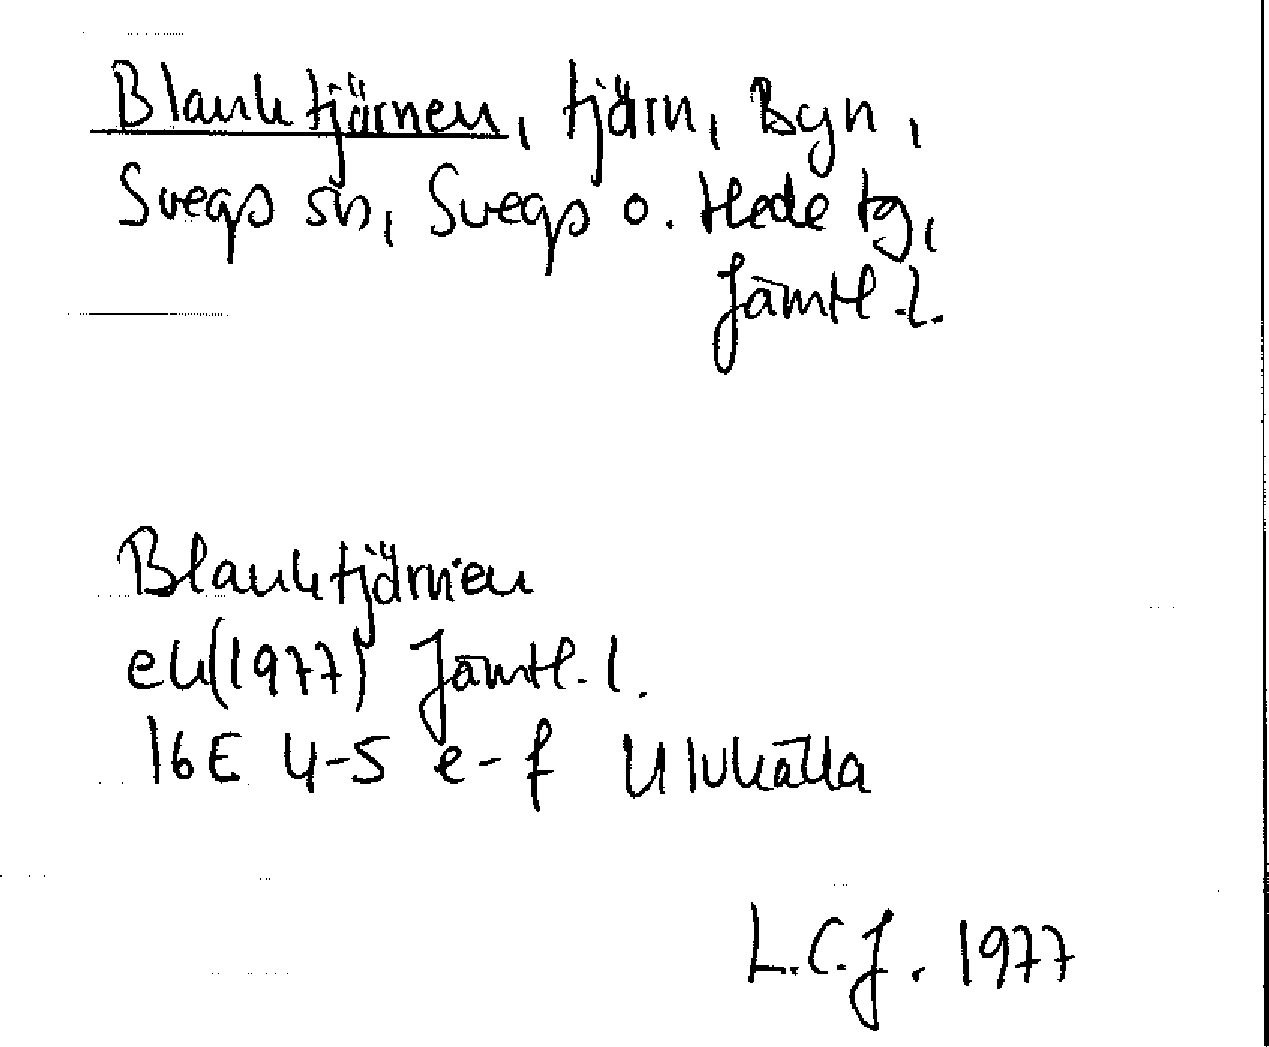 Blanktjärnen, tjärn, Byn,
Svegs sn, Svegs o. Hede tg,
Jämtl. l.
Blanktjärnen
ek(1977) Jämtl. l.
16E 4-5 e-f Ulvkälla
L.C.J. 1977